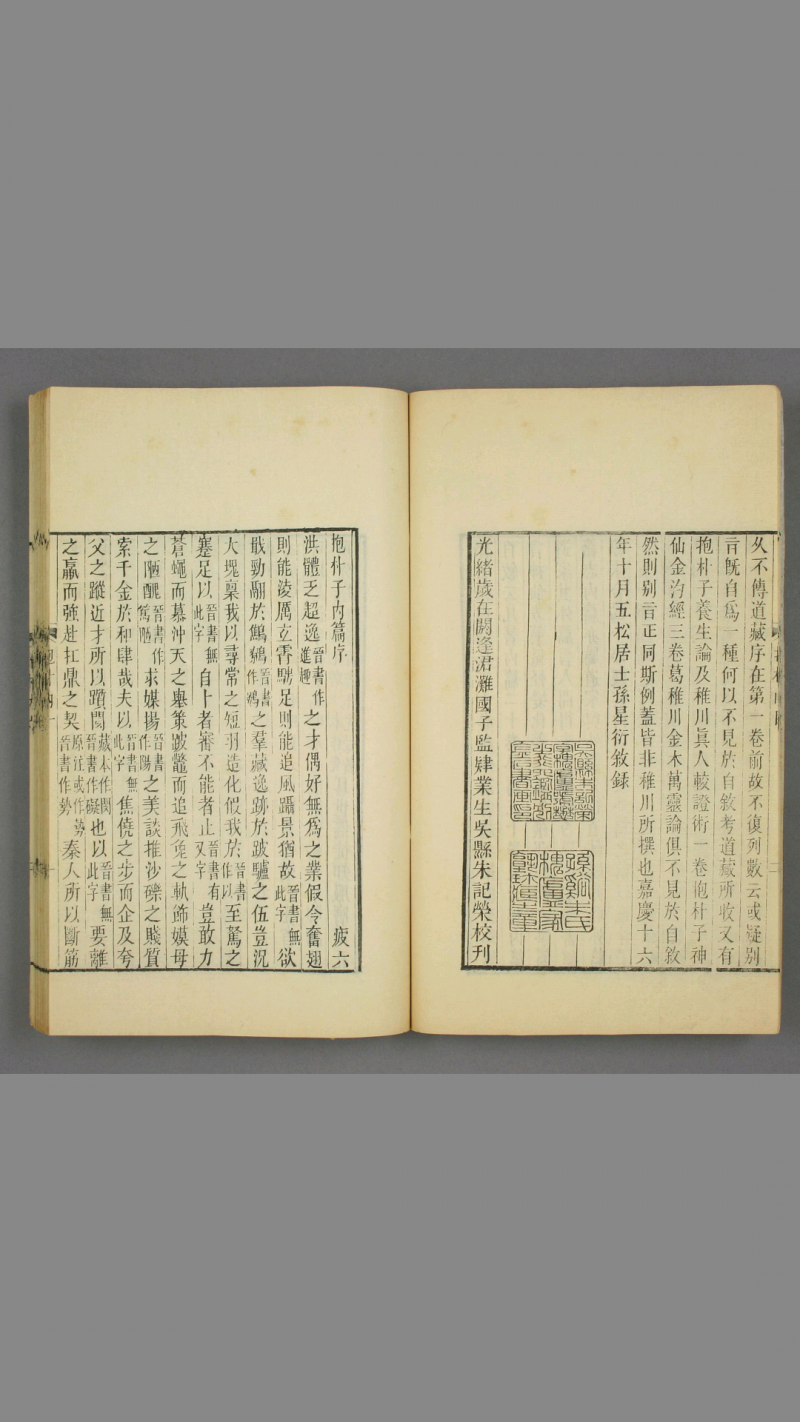 久不傳道藏序在第一卷前故不復列數云或疑別
言旣自爲一種何以不見於自敘考道藏所收又有
抱朴子養生論及稚川眞人較證術一卷抱朴子神
仙金汋經三卷葛稚川金木萬靈論俱不見於自敘
然則别言正同斯例蓋皆非稚川所撰也嘉慶十六
年十月五松居士孫星衍敘錄
光緒歲在閼逢涒灘國子監肄業生吳縣朱記榮校刊
抱朴子內篇序 疲六
洪體乏超逸晉書作進趣之才偶好無爲之業假令奮翅
則能淩厲玄霄騁足則能追風躡景猶故晉書無此字欲
戢勁翮於鷦鷃晉書作鷃之羣藏逸跡於跛驢之伍豈況
大塊稟我以尋常之短羽造化假我於晉書作以至駑之
蹇足以晉書無此字自卜者審不能者止晉書有又字豈敢力
蒼蠅而慕沖天之舉策跛鼈而追飛兔之軌飾嫫母
之陋醜晉書作篤陋求媒揚晉書作陽之美談推沙礫之賤質
索千金於和肆哉夫以晉書無此字焦僥之步而企及夸
父之蹤近才所以躓閡藏本作閡晉書作礙也以晉書無此字要離
之羸而強赴扛鼎之契原注或作勢晉書作勢秦人所以斷筋